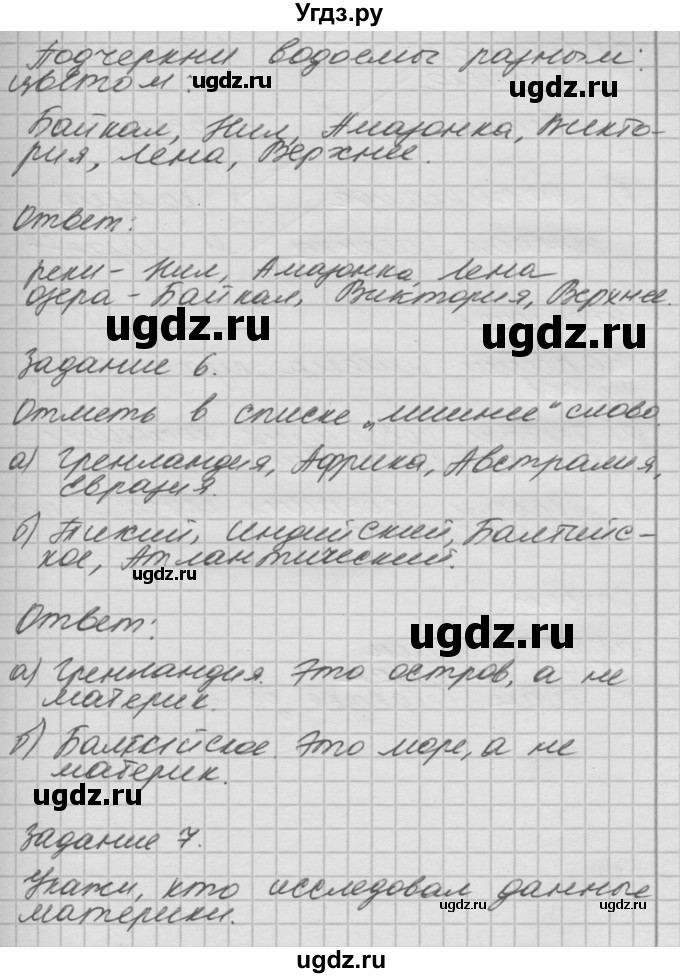 Угдз.ру
Подчеркни водоемы разным
цветом:
ugdz.ru
ugdz.ru
Байкал, Нил, Амазонка, Викто-
рия, Лена, Верхнее.
Ответ:
реки - Нил, Амазонка, Лена
озера - Байкал, Виктория, Верхнее.
ugdz.ru
ugdz.ru
Задание 6.
Отметь в списке „лишнее“ слово.
а) Гренландия, Африка, Австралия,
Евразия.
б) Тихий, Индийский, Балтийс-
кое, Атлантический.
ugdz.ru
Ответ:
ugdz.ru
а) Гренландия. Это остров, а не
материк.
б) Балтийское. Это море, а не
материк.
ugdz.ru
Задание 7.
Укажи, кто исследовал данные
материки.
ugdz.ru
ugdz.ru
ugdz.ru